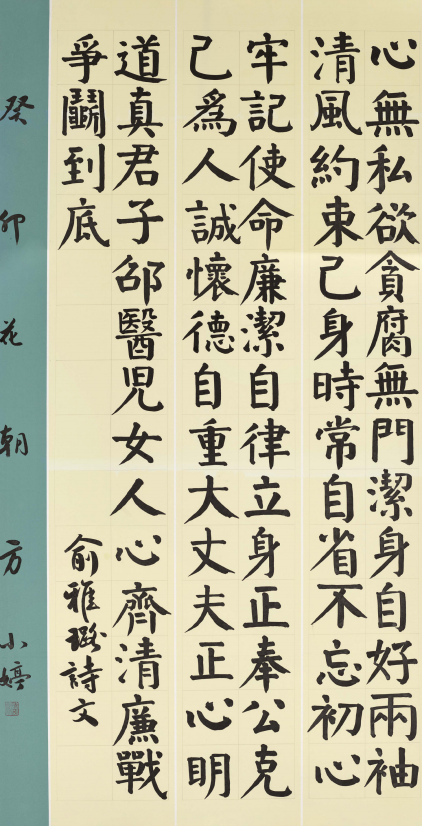 心無私欲貪腐無門潔身自好兩袖
清風約束己身時常自省不忘初心
牢記使命廉潔自律立身正奉公克
己爲人誠懷德自重大丈夫正心明
道真君子邵醫兒女人心齊清廉戰
爭鬭到底
俞雅璐詩文
癸卯花朝方小婷